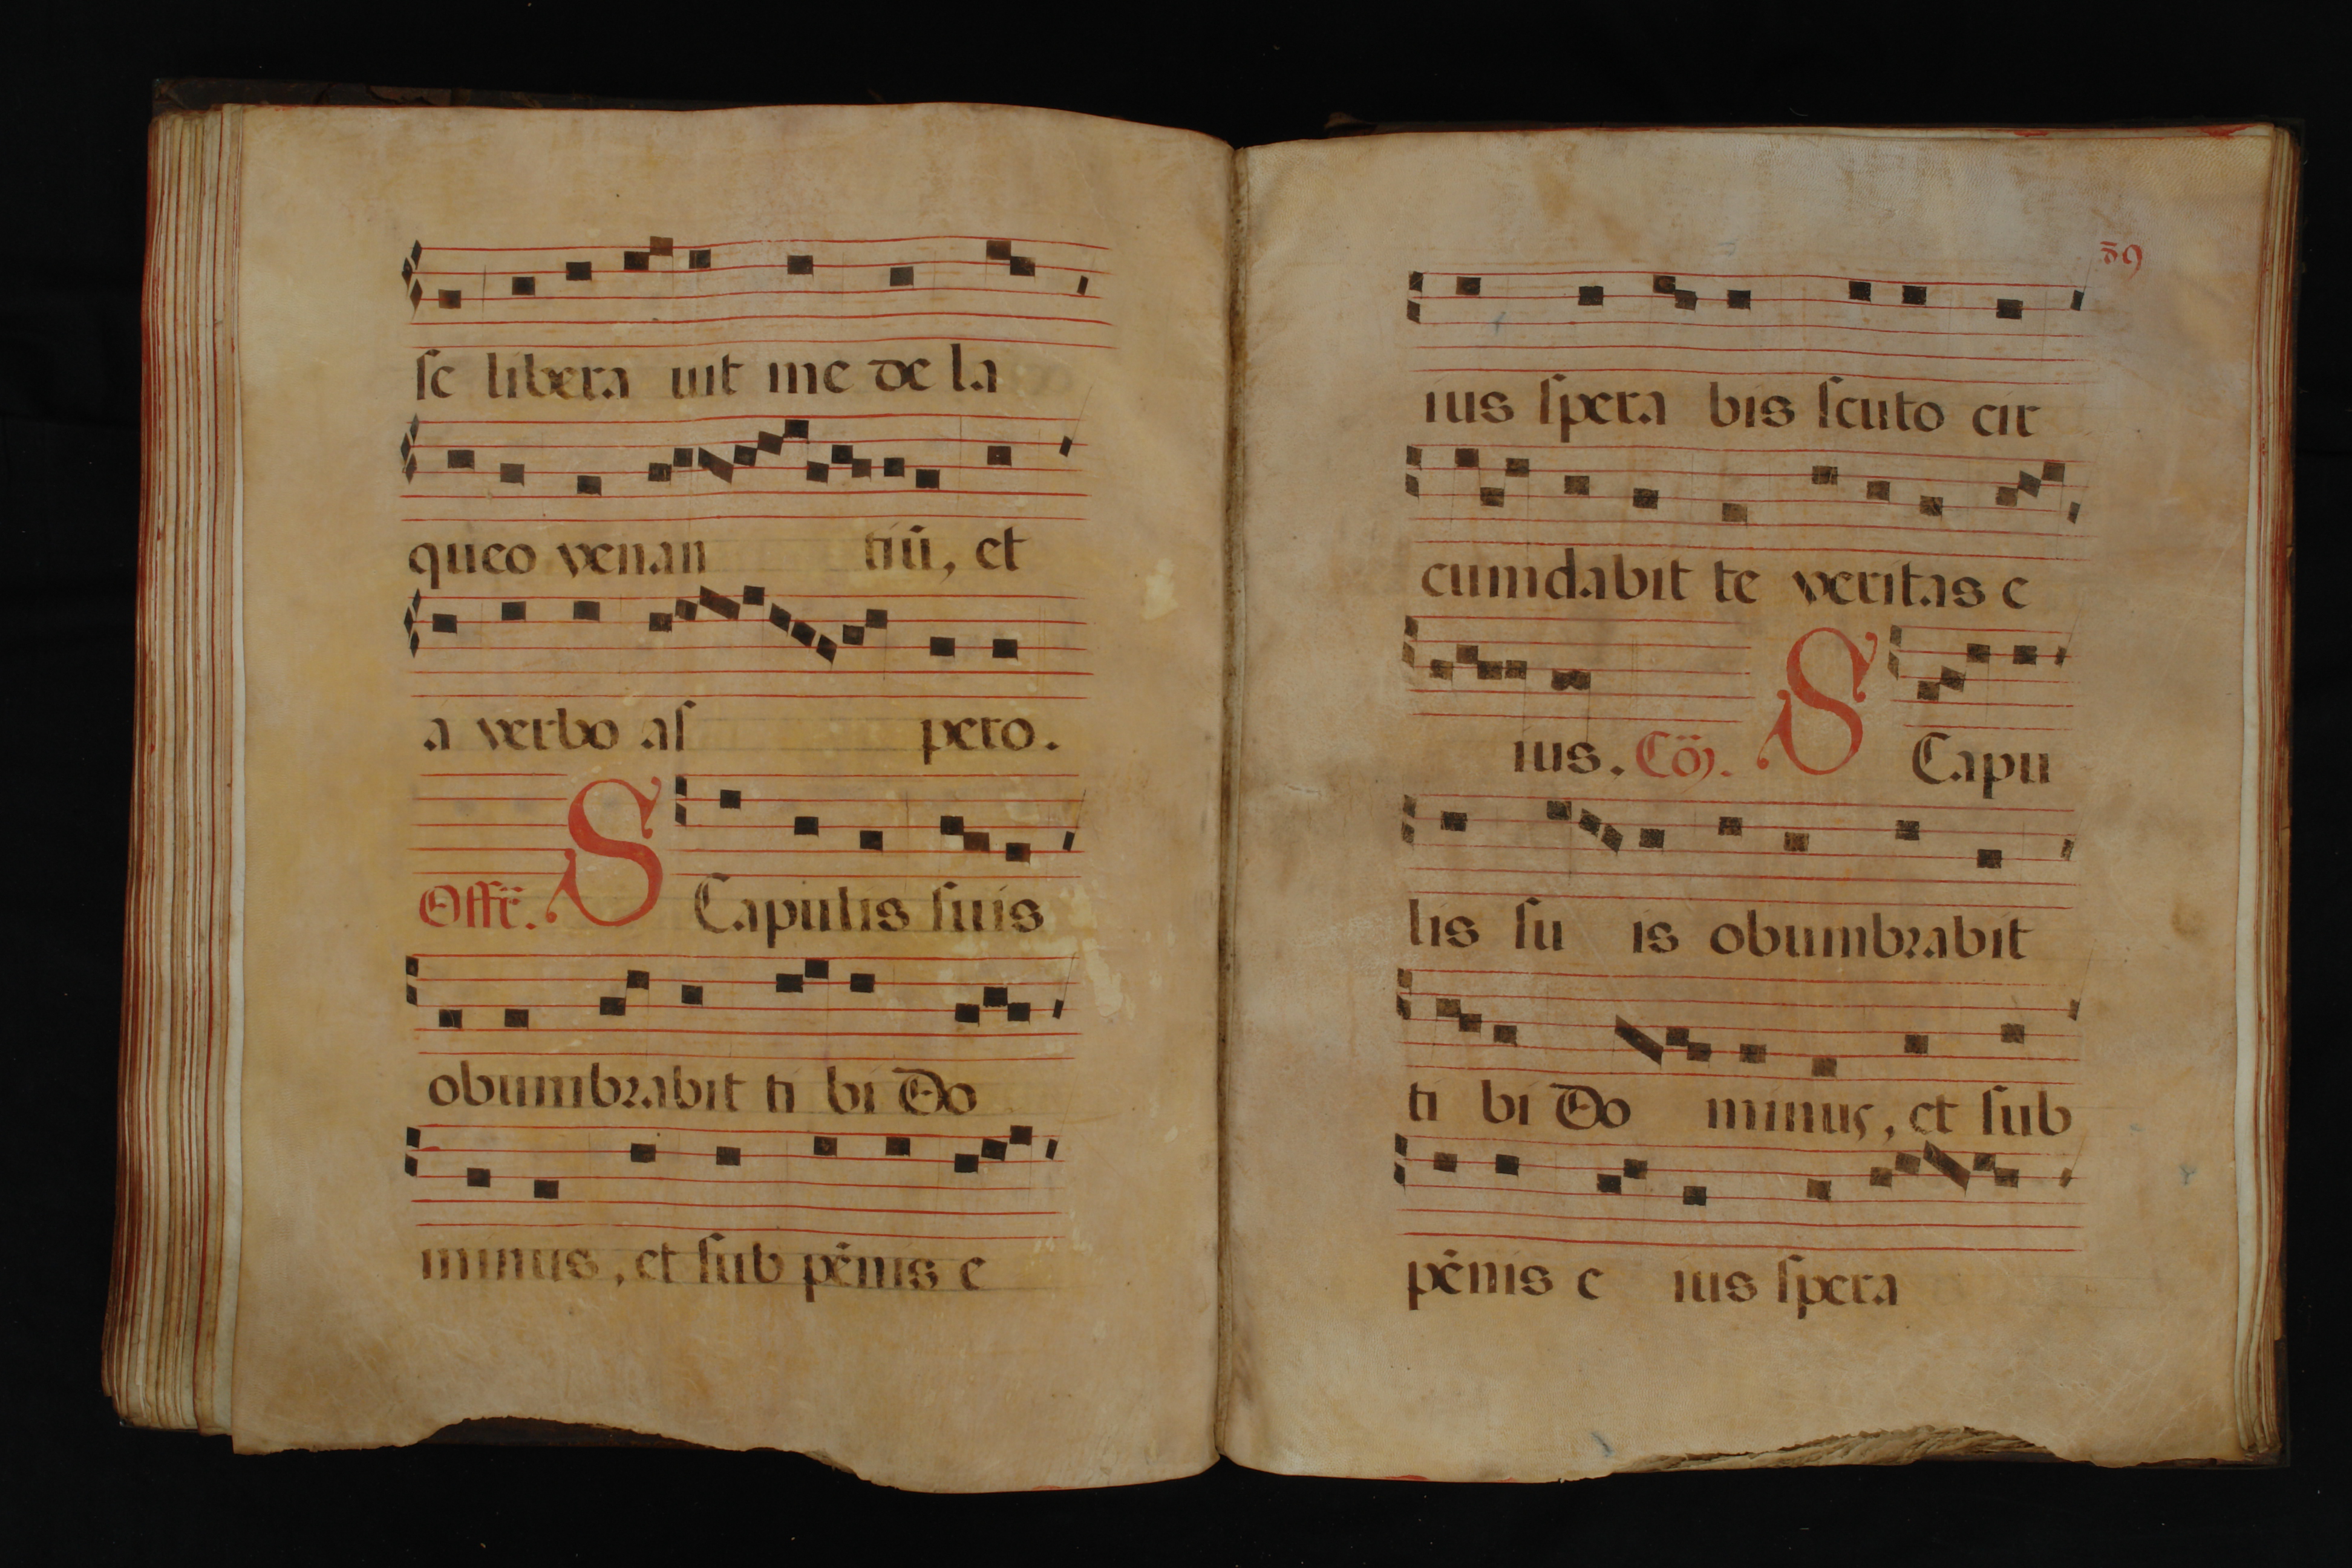 se libera uit me de la
queo venan tiū, et
a verbo as pero.
Offē. SCapulis suis
obumbrabit ti bi Do
minus, et sub pēnis e
59
ius spera bis scuto cir
cumdabit te veritas e
ius. Cō. SCapu
lis su is obumbrabit
ti bi Do minus, et sub
pēnis e ius spera